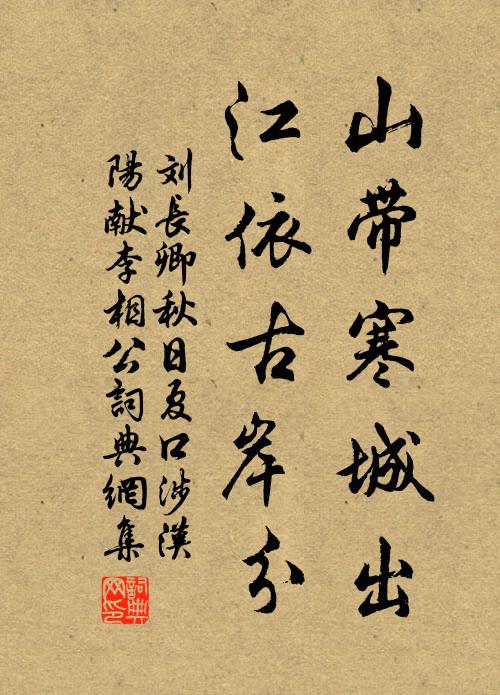 山帶寒城出
江依古岸分
刘長卿秋日夏口涉漢
陽献李相公詞典網集
詞典网印